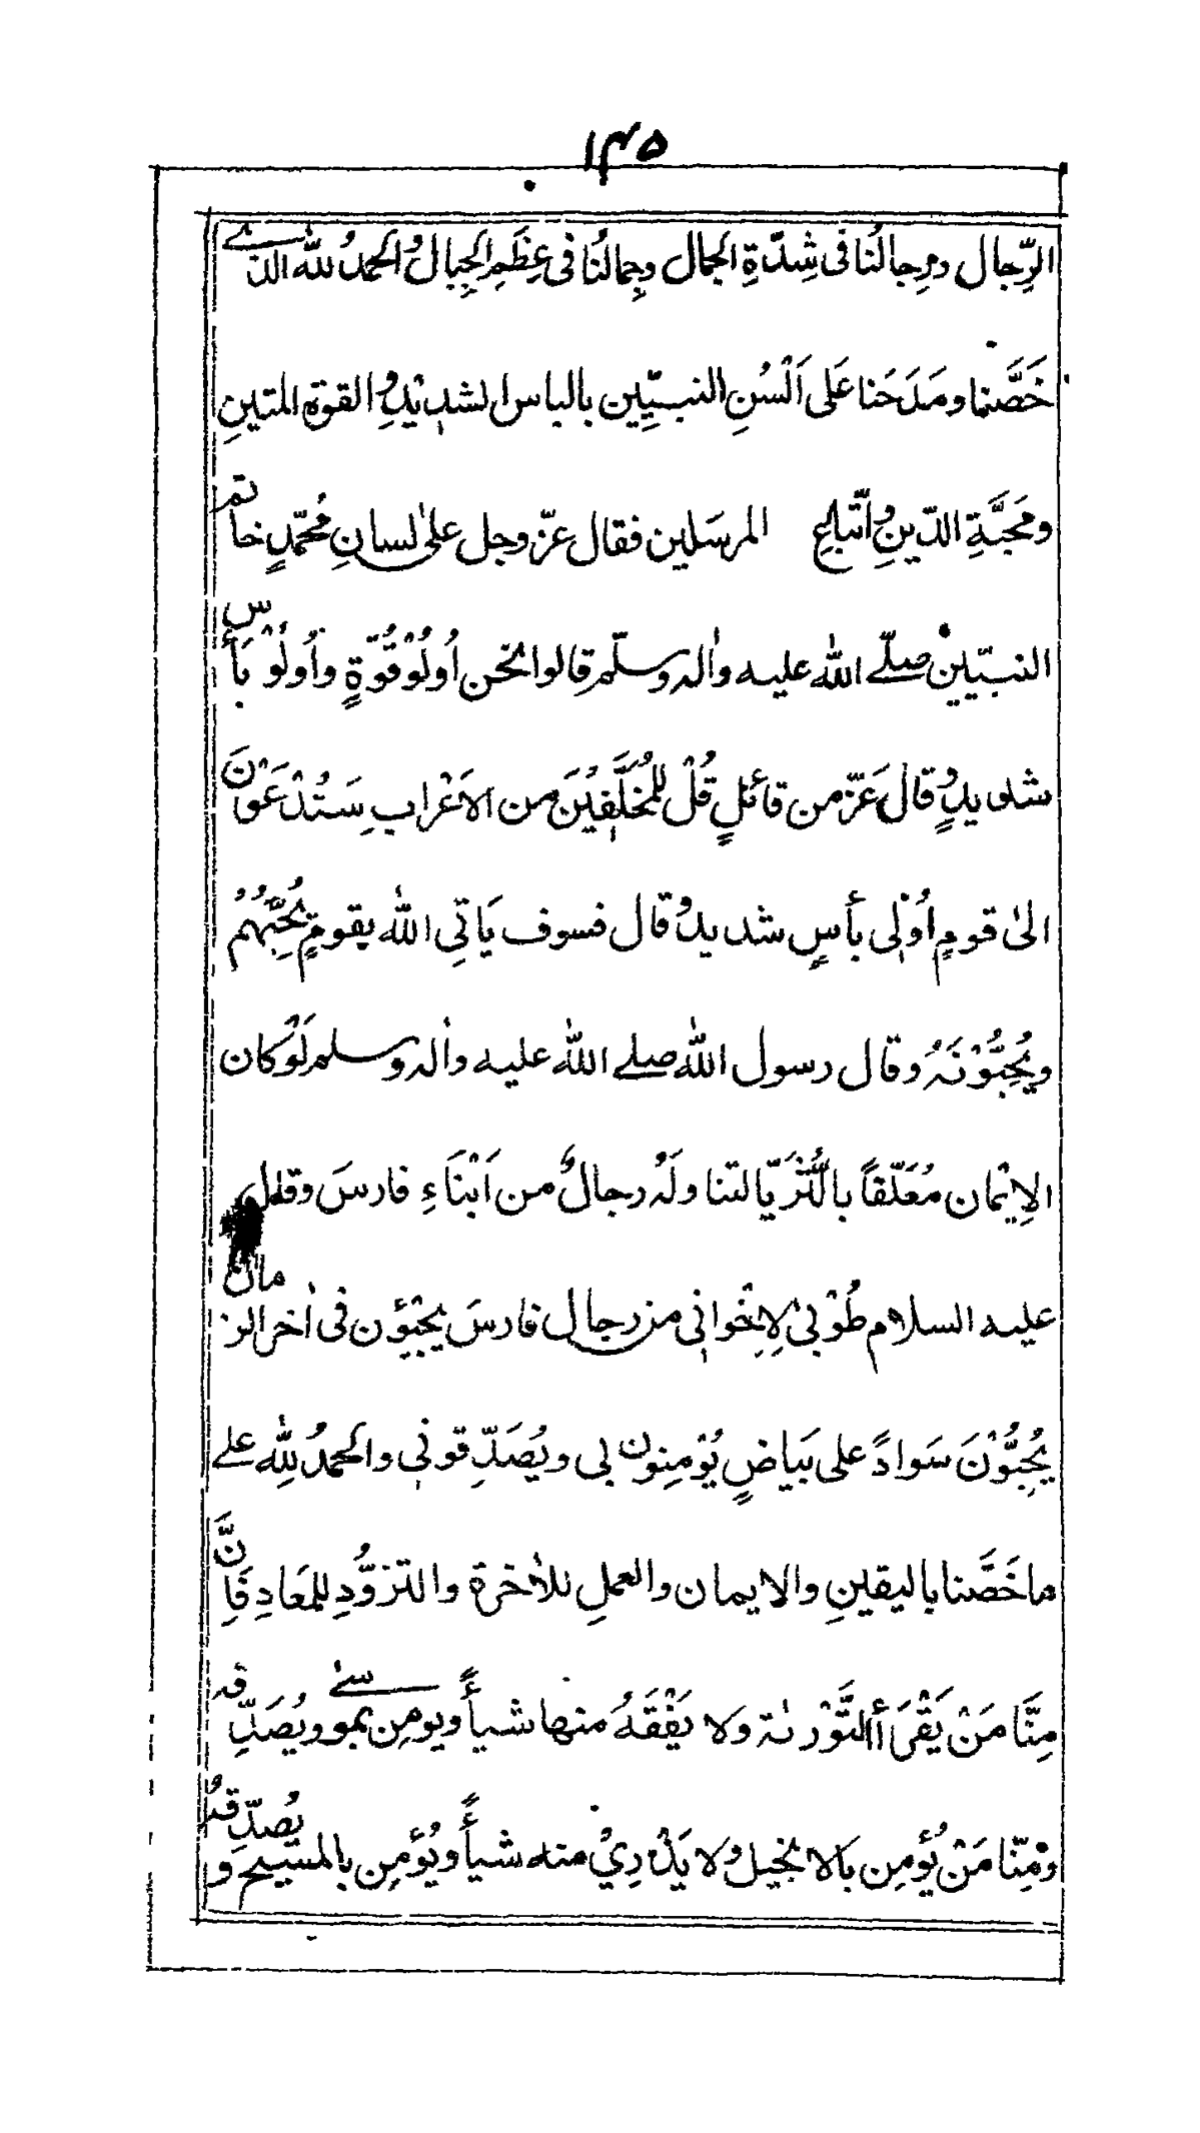 ١٣٥
الرِّجال ورِجالُنا فی شِدّةِ الجمال وجِمالُنا فی عِظَمِ الجِبالُ والحمدُ للّٰه الذی
خَصَّنا ومَدَحَنا عَلی اَلْسُنِ النبیّین بالباس الشدیدِ والقوة المتینِ
ومَحَبَّةِ الدّینِ واتّباعِ المرسَلین فقال عزّ وجل علیٰ لسانِ مُحمّدٍ خاتم
النبیّین صلّے اللّٰه علیه واٰله وسلّم قالوا نحن اُولُوْ قُوَّةٍ واُولُوْ بَأْسٍ
شدیدٍ وقالَ عَزّ من قائلٍ قُلْ لِلْمُخَلَّفِیْنَ من الاَعْرابِ سَتُدْعَوْنَ
الیٰ قومٍ اُوْلِی بأسٍ شدیدُ وقال فسوف یَاتِی اللّٰه بقومٍ یُحِبُّهُمْ
ویُحِبُّوْنَهُ وقال رسول اللّٰه صلے اللّٰه علیه واٰله وسلم لَوْ کان
الاِیْمان مُعَلّقاً بالثُّرَیّا لتنا وَلَهُ رجالٌ من اَبْنَاءِ فارسَ وقال
علیه السلام طُوْبیٰ لِاِخْوانِی من رجال فارسَ یَجِیْؤُن فی اٰخر الزمان
یُحِبُّوْنَ سَواداً علی بَیاضٍ یُوْمِنون بی ویُصَدِّقونِی والحمدُ لِلّٰه علے
ما خَصَّنا بالیقینِ والایمان والعملِ للاٰخرة والتزوُّدِ للمَعادِ فَاِنَّ
مِنَّا مَنْ یَقْرَأ التَّوْرٰیة ولا یَفْقَهُ منها شیأً ویومِن بموسیٰ ویُصَدِّقه
ومِنّا مَنْ یُؤمِن بالانجیل ولا یَدْرِیْ منه شیأً ویُؤمِن بالمسیح ویُصدِّقهُ